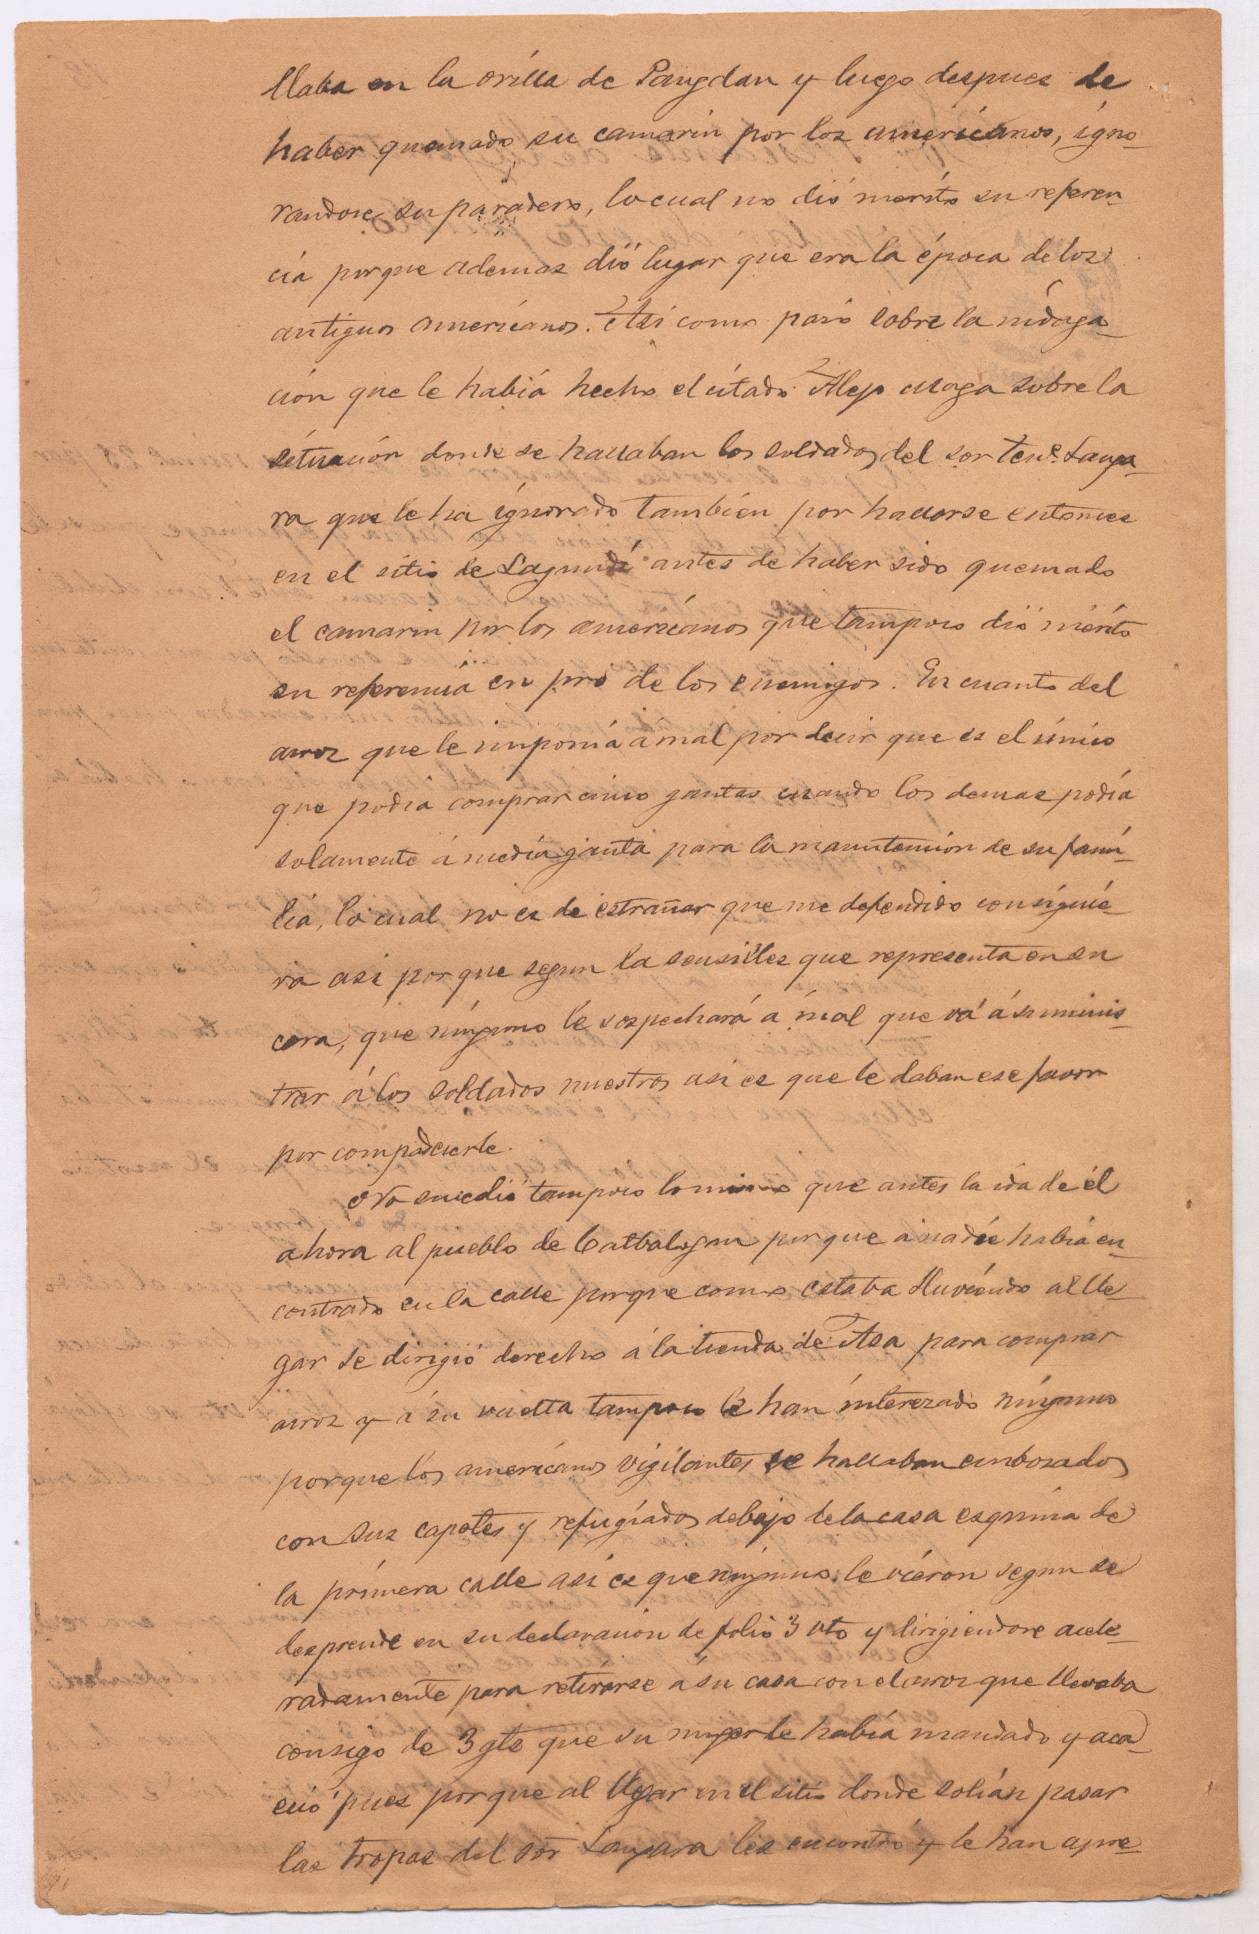 llaba en la orilla de Pangdan y luego despues de
haber quemado su camarin por los americanos, igno-
randose su paradero, lo cual no dió merito su referen
cia porque ademas dió lugar que era la época de los
antiguos americanos. Asi como pasó sobre la indaga-
ción que le habiá hecho el citado Alejo Moga sobre la
situación donde se hallaban los soldados del sor Tene. Langa-
ra que le ha ignorado tambien por hallarse entonces
en el sitio de Lagundi antes de haber sido quemado
el camarin por los americanos que tampoco dió mérito
su referencia en pro de los enemigos. En cuanto del
arroz que le imponia á mal por decir que es el único
que podia comprar cinco gantas cuando los demas podia
solamente á media ganta para la manutención de su fami-
lia, lo cual no es de estrañar que me defendido consiguié-
ra asi porque segun la sensilles que representa en su
cara, que ninguno le sospechará á mal que vá á suminis-
trar á los soldados nuestros asi es que le daban ese favor
por compadecerle.
No sucedió tampoco lo mismo que antes la ida de él
ahora al pueblo de Catbalogan porque á nadie habia en-
contrado en la calle porque como estaba lluviendo al lle-
gar se dirigió derecho á la tienda de Asa para comprar
arroz y á su vuelta tampoco le han interezado ninguno
porque los americanos vigilantes se hallaban embozados
con sus capotes y refugiados debajo de la casa esquina de
la primera calle asi es que ninguno le vieron segun se
desprende en su declaración de folio 3 vto y dirigiendose acele-
radamente para retirarse á su casa con el arroz que llevaba
consigo de 3 gts que su mujer le habia mandado y aca-
eció pues porque al llegar en el sitio donde solián pasar
las tropas del sor Langara les encontró y le han apre-